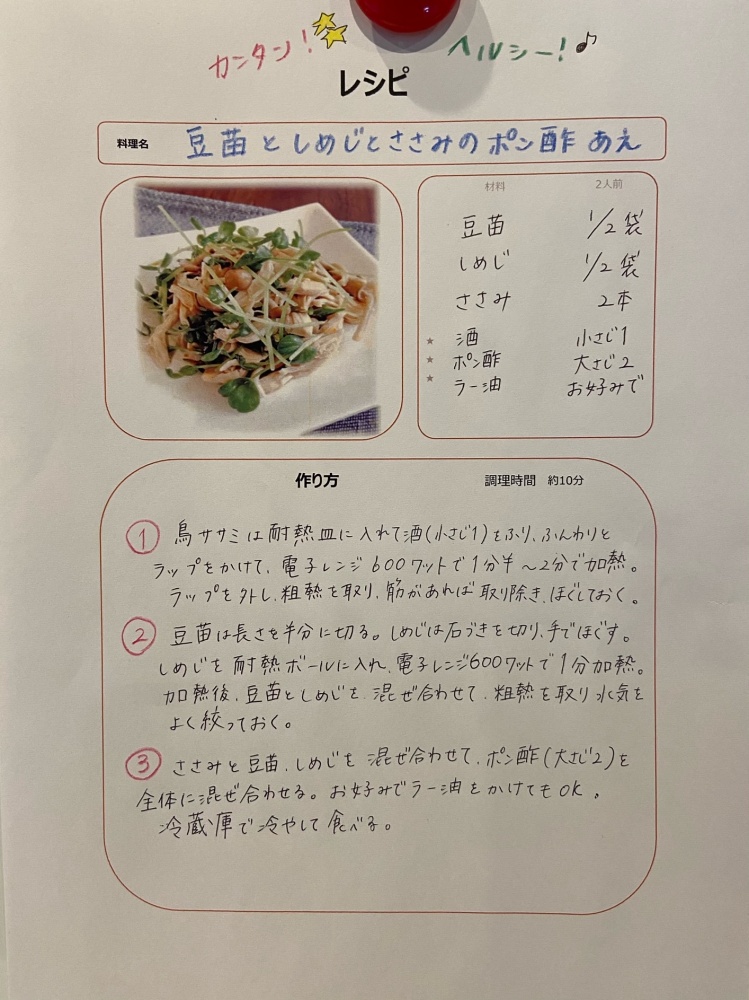 カンタン!
ヘルシー!♪
レシピ
料理名 豆苗としめじとささみのポン酢あえ
材料 2人前
豆苗 1/2袋
しめじ 1/2袋
ささみ 2本
★ 酒 小さじ1
★ ポン酢 大さじ2
★ ラー油 お好みで
作り方 調理時間 約10分
① 鳥ササミは耐熱皿に入れて酒(小さじ1)をふり、ふんわりと
ラップをかけて、電子レンジ600ワットで1分半〜2分で加熱。
ラップを外し、粗熱を取り、筋があれば取り除き、ほぐしておく。
② 豆苗は長さを半分に切る。しめじは石づきを切り、手でほぐす。
しめじを耐熱ボールに入れ、電子レンジ600ワットで1分加熱。
加熱後、豆苗としめじを混ぜ合わせて、粗熱を取り水気を
よく絞っておく。
③ ささみと豆苗、しめじを混ぜ合わせて、ポン酢(大さじ2)を
全体に混ぜ合わせる。お好みでラー油をかけてもOK。
冷蔵庫で冷やして食べる。